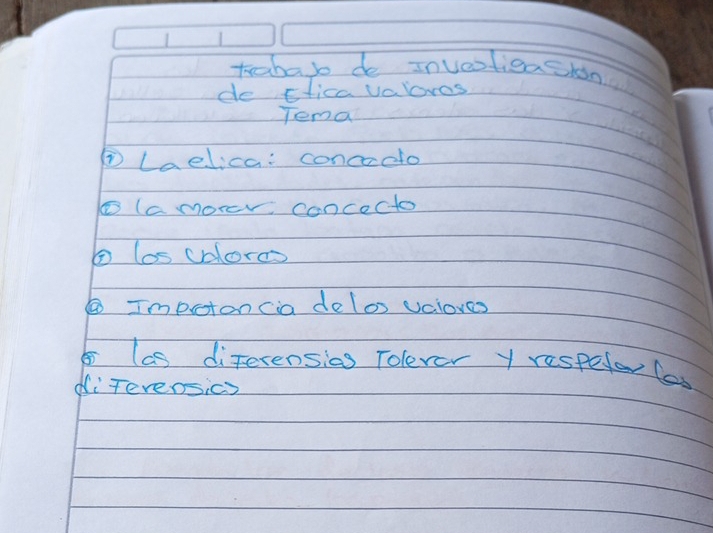 trabajo de Investigasion
de Etica valores
Tema
① La etica: concecto
② la morar concecto
③ los valores
④ Impotancia delos valores
⑤ las diferensias Tolerar y respetar las
diferensias